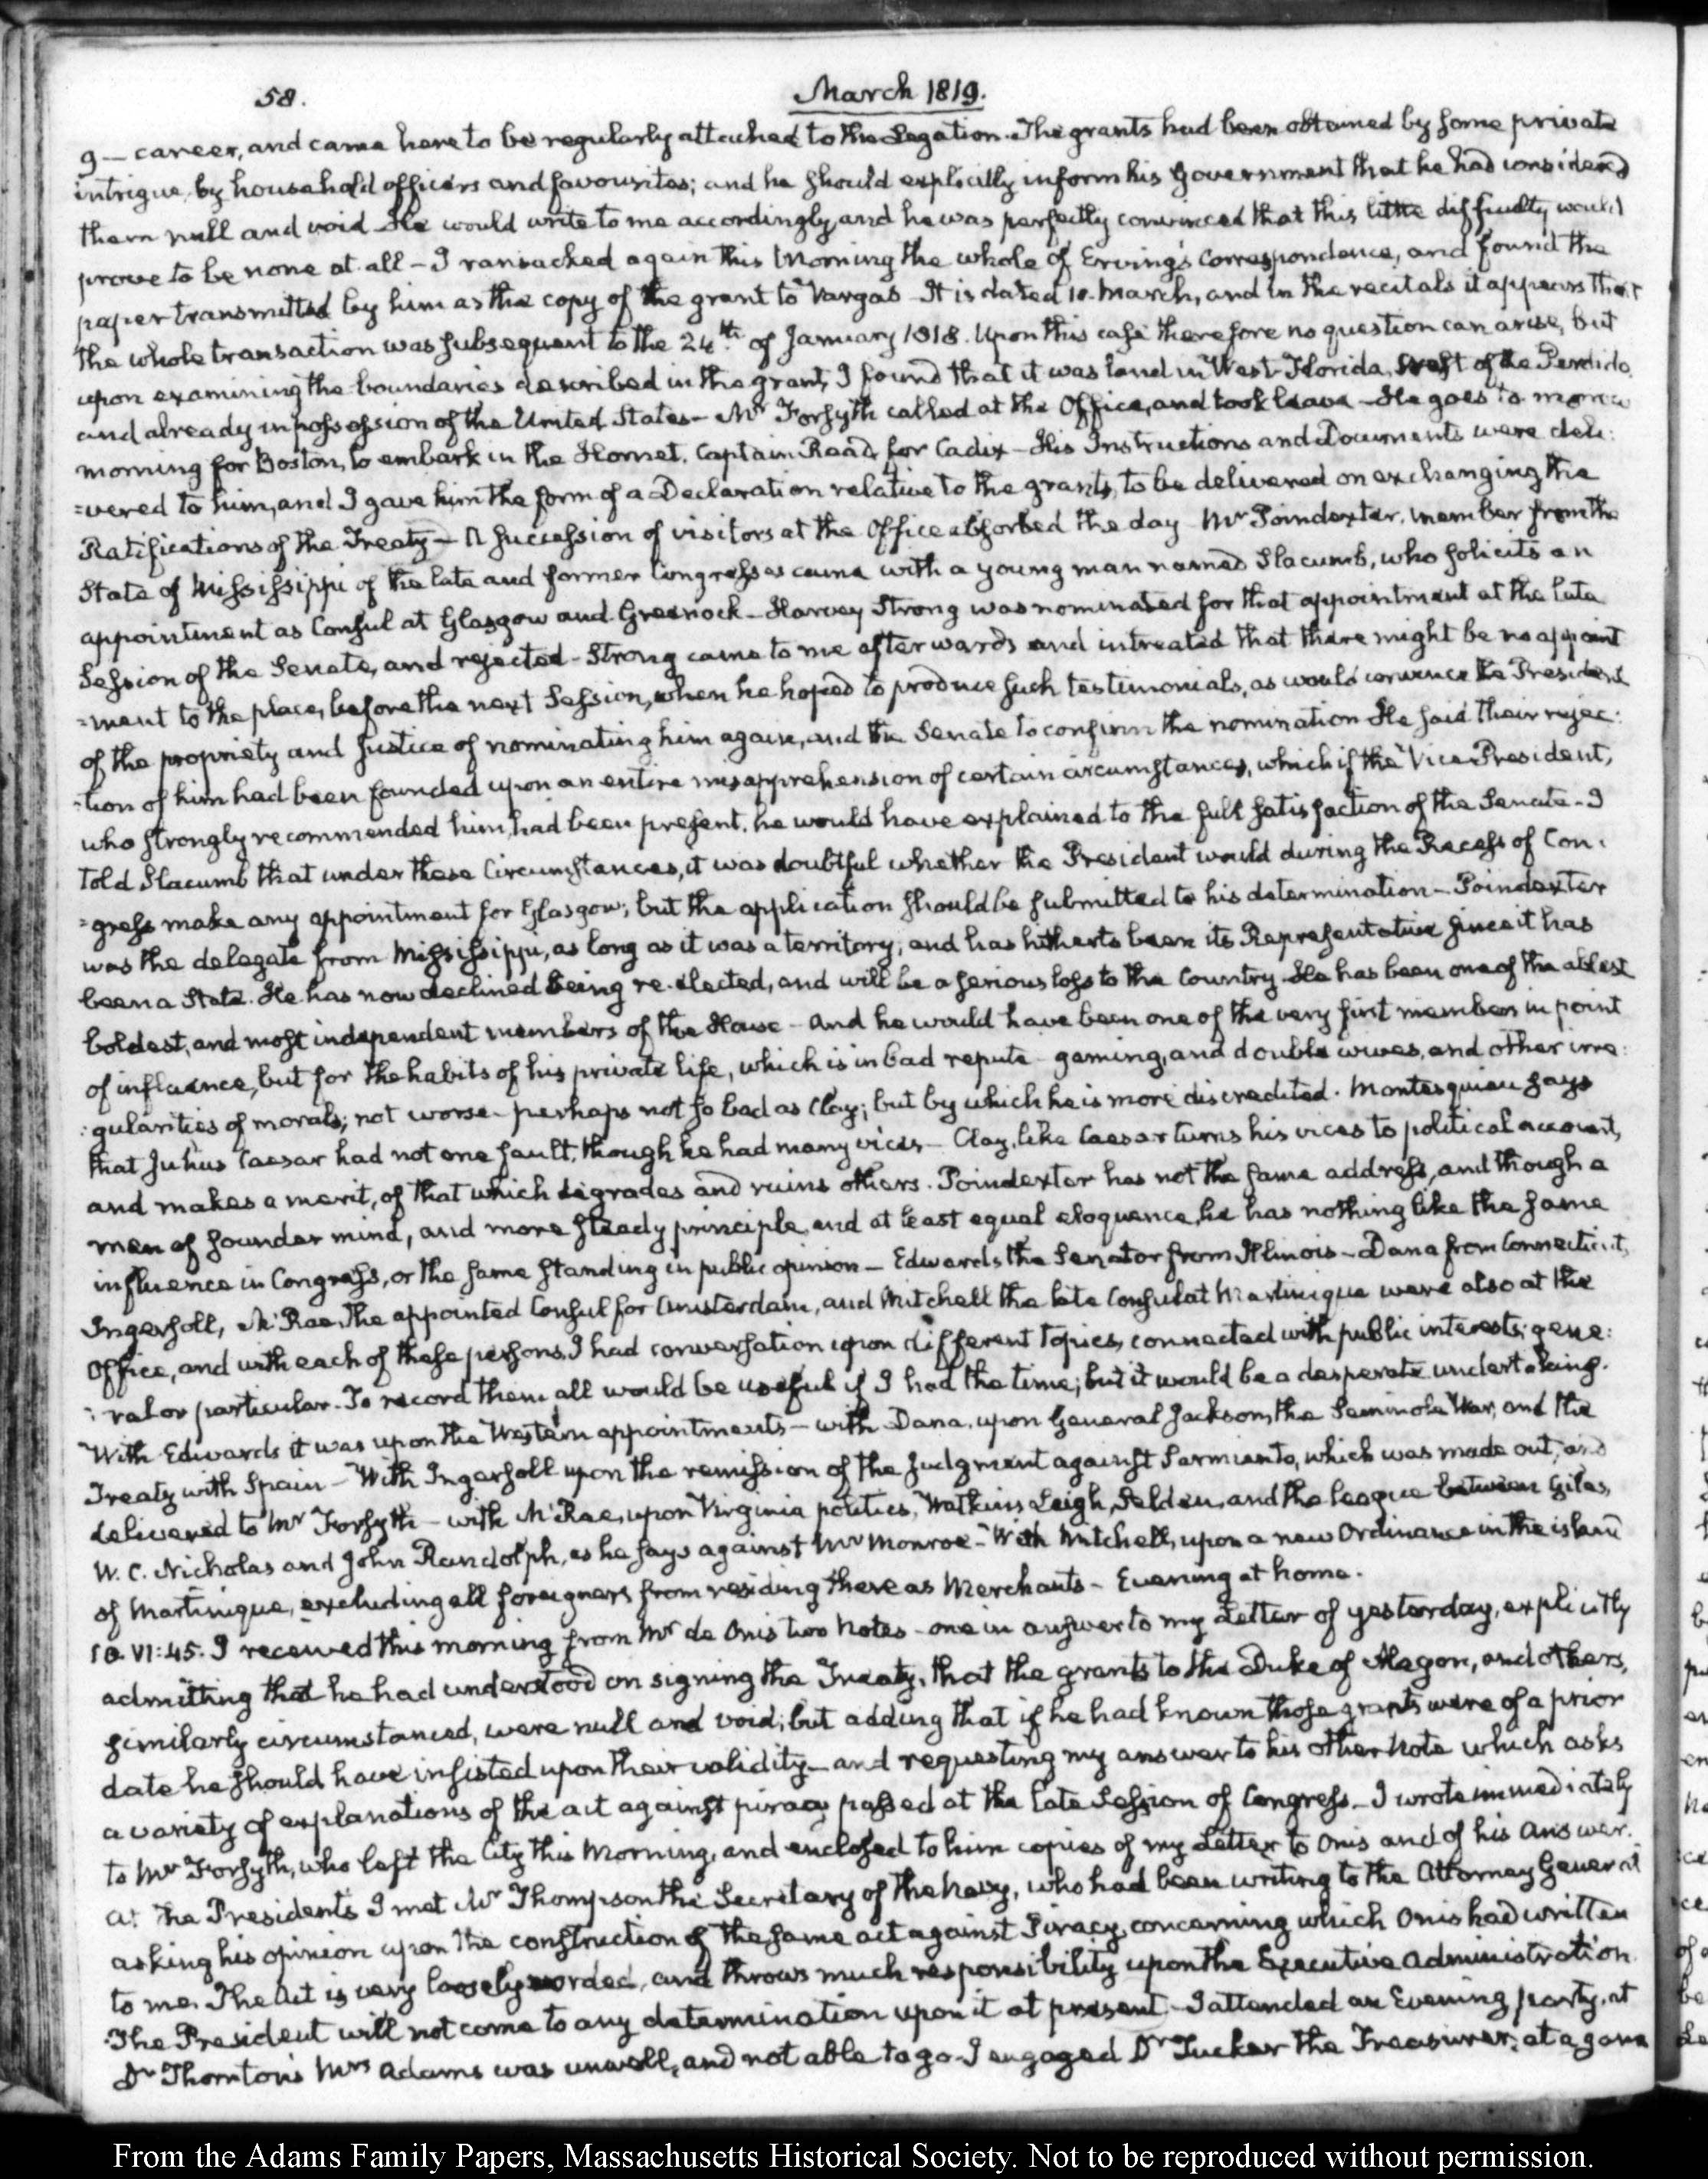 58.
March 1819.
9 — career, and came here to be regularly attached to the Legation. The grants had been obtained by some private
intrigue, by household officers and favourites; and he should explicitly inform his Government that he had considered
them null and void. He would write to me accordingly, and he was perfectly convinced that this little difficulty would
prove to be none at all — I ransacked again this Morning the whole of Erving's Correspondence, and found the
paper transmitted by him as the copy of the grant to Vargas. It is dated 10. March, and in the recitals it appears that
the whole transaction was subsequent to the 24th of January 1818. Upon this case therefore no question can arise, but
upon examining the boundaries described in the grant, I found that it was land in West-Florida, West of the Perdido
and already in possession of the United States — Mr Forsyth called at the Office, and took leave — He goes to morrow
morning for Boston, to embark in the Hornet, Captain Read, for Cadix — His Instructions and Documents were deli:
=vered to him, and I gave him the form of a Declaration relative to the grants, to be delivered on exchanging the
Ratifications of the Treaty — A succession of visitors at the Office absorbed the day. Mr Poindexter, member from the
State of Mississippi of the late and former Congresses came with a young man named Slacumb, who solicits an
appointment as Consul at Glasgow and Greenock — Harvey Strong was nominated for that appointment at the late
Session of the Senate, and rejected — Strong came to me afterwards and intreated that there might be no appoint
=ment to the place, before the next Session, when he hoped to produce such testimonials, as would convince the President
of the propriety and Justice of nominating him again, and the Senate to confirm the nomination. He said their rejec:
:tion of him had been founded upon an entire misapprehension of certain circumstances, which if the Vice-President,
who strongly recommended him, had been present, he would have explained to the full satisfaction of the Senate — I
told Slacumb that under these Circumstances, it was doubtful whether the President would during the Recess of Con:
=gress make any appointment for Glasgow; but the application should be submitted to his determination — Poindexter
was the delegate from Mississippi, as long as it was a territory, and has hitherto been its Representative since it has
been a State. He has now declined being re-elected, and will be a serious loss to the Country. He has been one of the ablest
boldest, and most independent members of the House — and he would have been one of the very first members in point
of influence, but for the habits of his private life, which is in bad repute — gaming, and double wives, and other irre:
:gularities of morals; not worse — perhaps not so bad as Clay; but by which he is more discredited. Montesquieu says
that Julius Caesar had not one fault, though he had many vices — Clay, like Caesar turns his vices to political account,
and makes a merit, of that which degrades and ruins others. Poindexter has not the same address, and though a
man of sounder mind, and more steady principle, and at least equal eloquence, he has nothing like the same
influence in Congress, or the same standing in public opinion — Edwards, the Senator from Illinois — Dana from Connecticut,
Ingersoll, McRae the appointed Consul for Amsterdam, and Mitchell the late Consul at Martinique were also at the
Office, and with each of these persons I had conversation upon different topics, connected with public interests, gene:
:ral or particular. To record them all would be useful if I had the time; but it would be a desperate undertaking.
With Edwards it was upon the Western appointments — with Dana, upon General Jackson, the Seminole War, and the
Treaty with Spain — With Ingersoll upon the remission of the Judgment against Sarmiento, which was made out, and
delivered to Mr Forsyth — with McRae, upon Virginia politics, Watkins Leigh, Selden, and the league between Giles,
W. C. Nicholas and John Randolph, as he says against Mr Monroe — With Mitchell, upon a new Ordinance in the island
of Martinique, excluding all foreigners from residing there as Merchants — Evening at home.
10. VI:45. I received this morning from Mr de Onis two Notes — one in answer to my Letter of yesterday, explicitly
admitting that he had understood on signing the Treaty, that the grants to the Duke of Alagon, and others,
similarly circumstanced, were null and void; but adding that if he had known those grants were of a prior
date he should have insisted upon their validity — and requesting my answer to his other Note which asks
a variety of explanations of the act against piracy passed at the late Session of Congress — I wrote immediately
to Mr Forsyth, who left the City this Morning, and enclosed to him copies of my Letter to Onis and of his Answer.
At the President's I met Mr Thompson the Secretary of the Navy, who had been writing to the Attorney General
asking his opinion upon the construction of the same act against Piracy, concerning which Onis had written
to me. The Act is very loosely worded, and throws much responsibility upon the Executive Administration
The President will not come to any determination upon it at present — I attended an Evening party, at
Dr Thornton's Mrs Adams was unwell, and not able to go — I engaged Dr Tucker the Treasurer, at a game
From the Adams Family Papers, Massachusetts Historical Society. Not to be reproduced without permission.